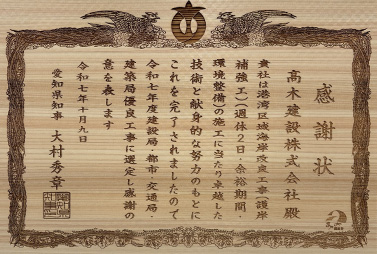 感謝状
高木建設株式会社殿
貴社は港湾区域海岸改良工事(護岸
補強工)(週休2日・余裕期間・
環境整備)の施工に当たり卓越した
技術と献身的な努力のもとに
これを完了されましたので
令和七年度建設局・都市・交通局・
建築局優良工事に選定し感謝の
意を表します
令和七年十月九日
愛知県知事 大村秀章